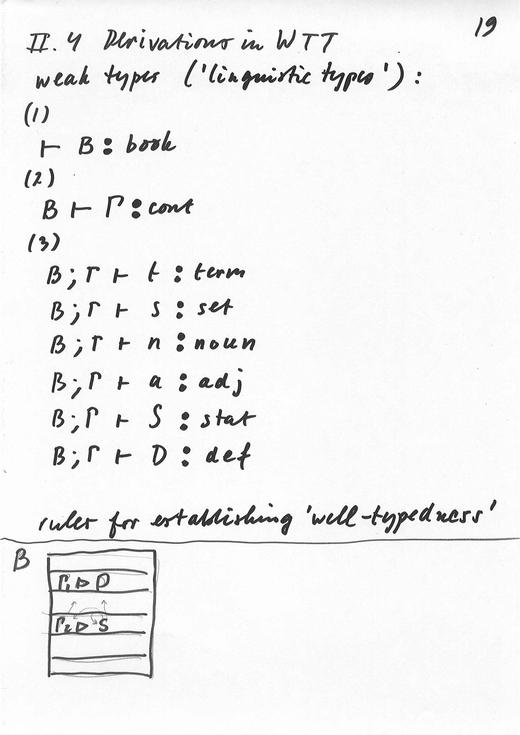 19
II.4 Derivations in WTT
weak types ('linguistic types') :
(1)
⊢ B : book
(2)
B ⊢ Γ : cont
(3)
B ; Γ ⊢ t : term
B ; Γ ⊢ s : set
B ; Γ ⊢ n : noun
B ; Γ ⊢ a : adj
B ; Γ ⊢ S : stat
B ; Γ ⊢ D : def
rules for establishing 'well-typedness'
B
Γ₁ ▷ D
Γ₂ ▷ S